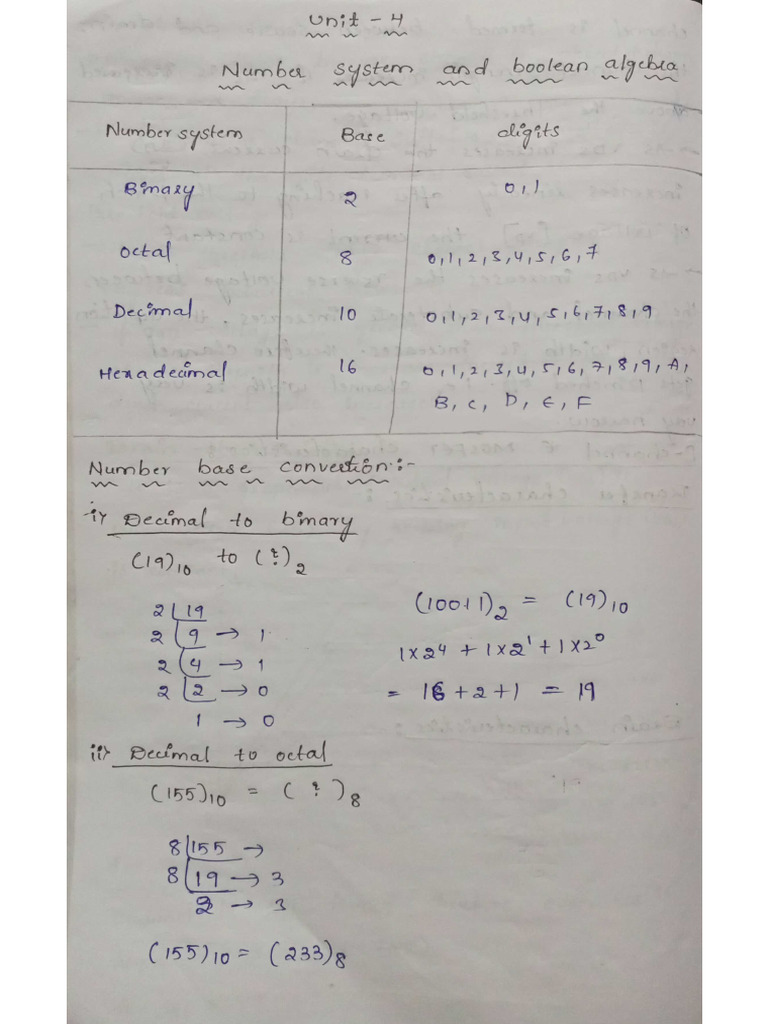 Unit - 4
Number system and boolean algebra
Number system Base digits
Binary 2 0,1
Octal 8 0,1,2,3,4,5,6,7
Decimal 10 0,1,2,3,4,5,6,7,8,9
Hexadecimal 16 0,1,2,3,4,5,6,7,8,9,A,
B,C,D,E,F
Number base convertion:-
i) Decimal to binary
(19)₁₀ to (?)₂
2 19
2 9 → 1
2 4 → 1
2 2 → 0
1 → 0
(10011)₂ = (19)₁₀
1×2⁴ + 1×2¹ + 1×2⁰
= 16 + 2 + 1 = 19
ii) Decimal to octal
(155)₁₀ = (?)₈
8 155 →
8 19 → 3
2 → 3
(155)₁₀ = (233)₈